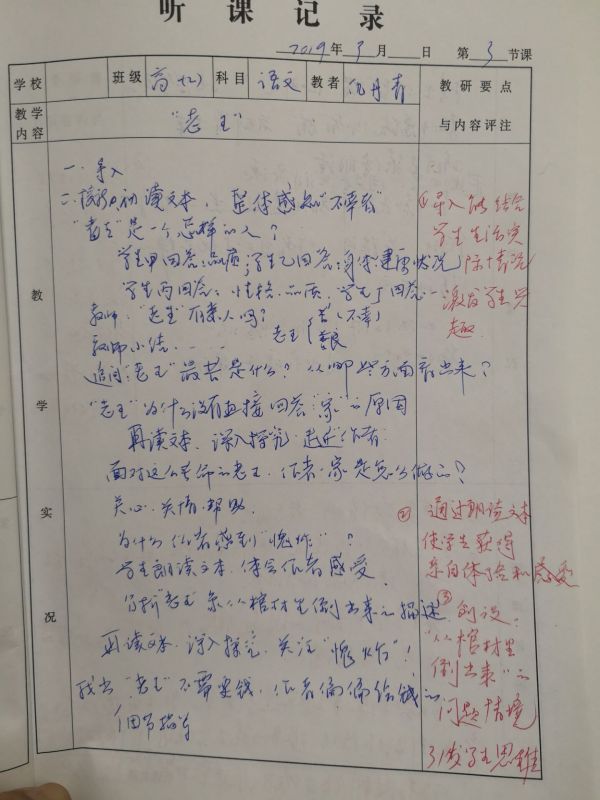 听课记录
2019年3月 日 第3节课
学校 班级 高一(2) 科目 语文 教者 丹青 教研要点
与内容评注
教学内容 "老王"
教学实况
一. 导入
二. 初读文本, 整体感知"不幸者"
"老王"是一个怎样的人?
学生甲回答:品质;学生乙回答:身体健康状况
学生丙回答:性格、品质. 学生丁回答
教师: "老王" 人吗? 老王 苦(不幸) 善良
教师小结......
追问:"老王"最苦是什么? 从哪些方面看出来?
"老王"为什么没有直接回答"家"的原因
再读文本, 深入探究 走近作者
面对这么苦命的老王, 作者一家是怎么做的?
关心.关情.帮助.
为什么作者感到"愧怍"?
学生朗读文本, 体会作者感受.
分析"老王"象从棺材里倒出来的描述.
再读文本, 深入探究, 关注"愧怍"!
找出"老王"不需要钱, 作者偏偏给钱的
细节描写
①导入能结合
学生生活实
际情况
激发学生兴
趣.
② 通过朗读文本
使学生获得
亲自体验和感受
③ 创设:
"从棺材里
倒出来"的
问题情境
引发学生思维